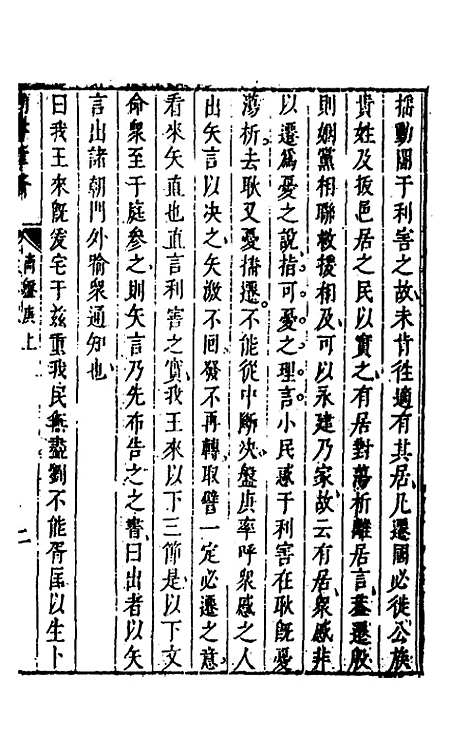 搖動關于利害之故未肯徃適有其居凡遷國必徙公族
貴姓及扳邑居之民以實之有居對蕩析離居言葢遷殷
則姻黨相聯救援相及可以永建乃家故云有居衆慼非
以遷爲憂之說指可憂之理言小民慼于利害在耿旣憂
蕩析去耿又憂播遷不能從中斷决盤庚率呼衆慼之人
出矢言以决之矢激不囘發不再轉取譬一定必遷之意
看來矢直也直言利害之實我王來以下三節是以下文
命衆至于庭參之則矢言乃先布告之之書曰出者以矢
言出諸朝門外喻衆通知也
曰我王來旣爰宅于兹重我民無盡劉不能胥匡以生卜
商盤庚上
二